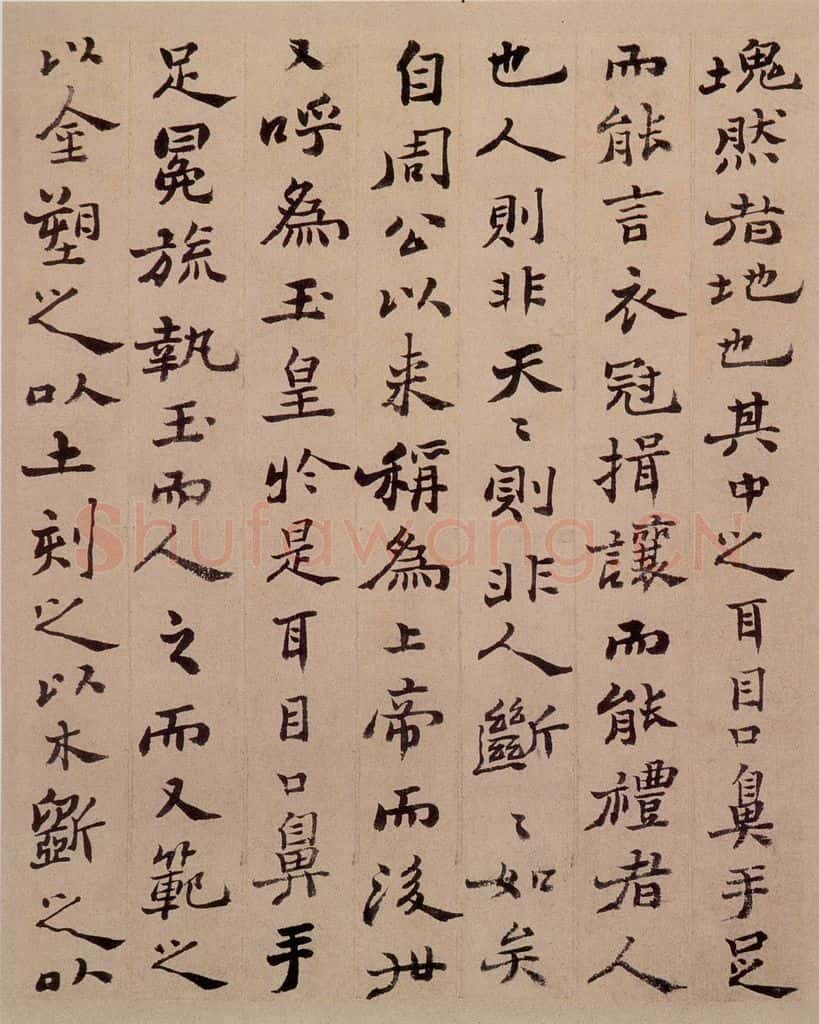 塊然者地也其中之耳目口鼻手足
而能言衣冠揖讓而能禮者人
也人則非天〻則非人斷〻如矣
自周公以来稱爲上帝而後世
又呼爲玉皇於是耳目口鼻手
足冕旒執玉而人之而又範之
以金塑之以土刻之以木斲之以
Shufawang.CN